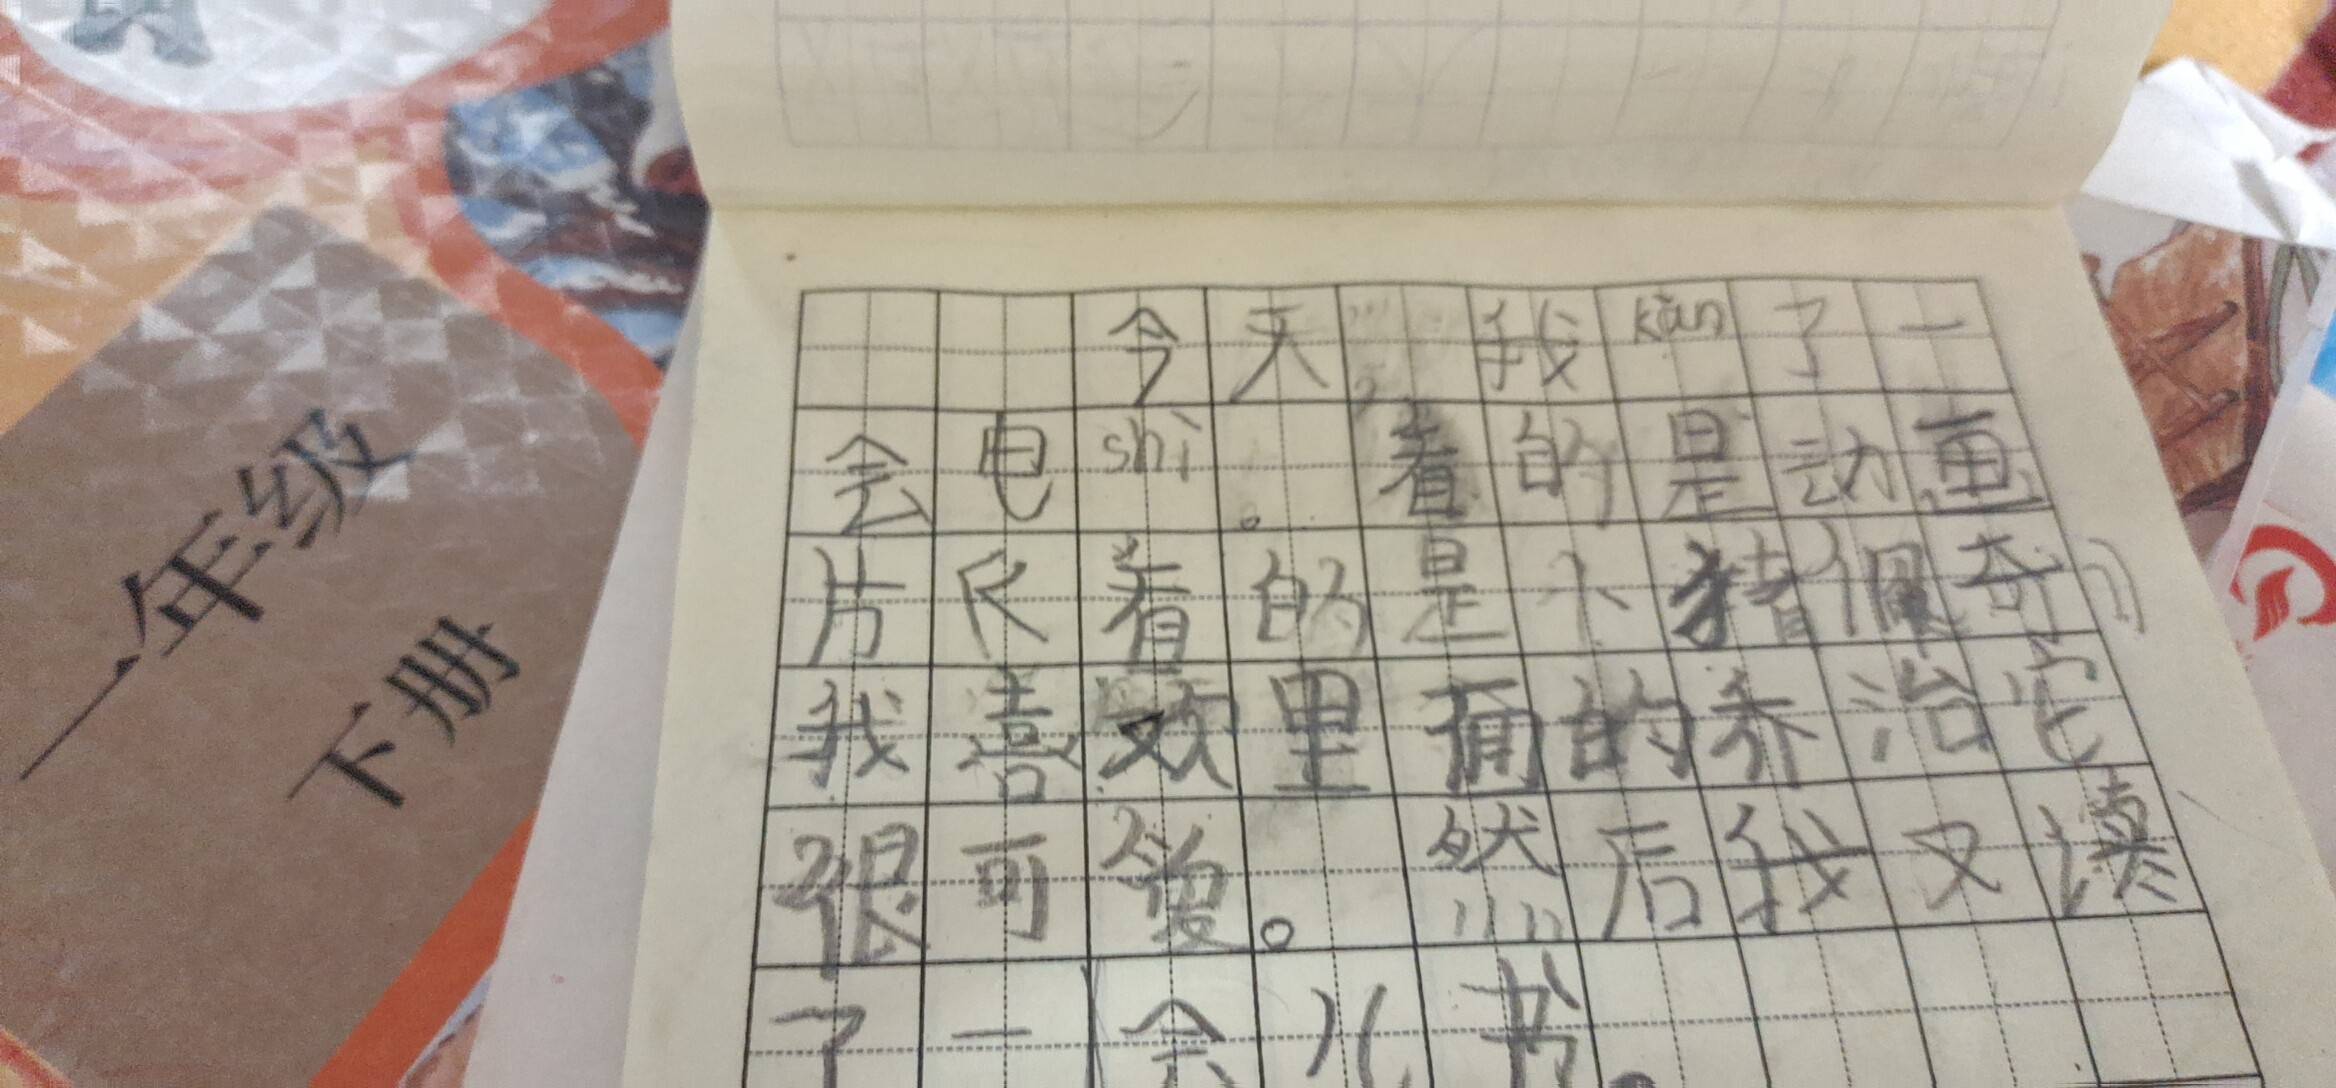 一年级
下册
今天,我kàn了一
会电shì。看的是动画
片尺看的是小猪佩奇
我喜欢里面的乔治它
很可爱。然后我又读
了一会儿书。